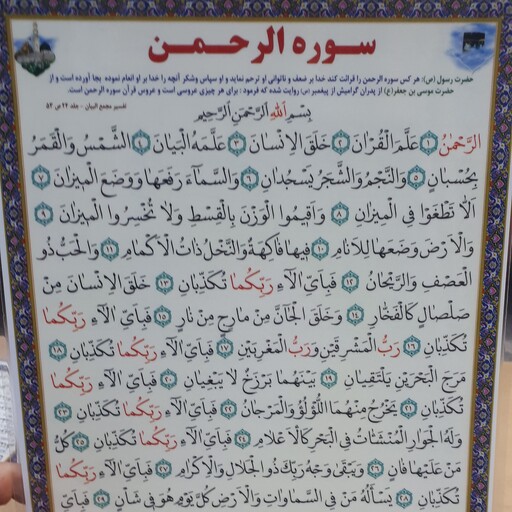 سوره الرحمن
حضرت رسول (ص): هر کس سوره الرحمن را قرائت کند خدا بر ضعف و ناتوانی او ترحم نماید و او سپاس وشکر آنچه را خدا بر او انعام نموده بجا آورده است و از
حضرت موسی بن جعفر(ع) از پدران گرامیش از پیغمبر (ص) روایت شده که فرمود: برای هر چیزی عروسی است و عروس قرآن سوره الرحمن است.
تفسیر مجمع البیان - جلد ۲۴ ص ۵۴
بِسْمِ اللهِ الرَّحْمٰنِ الرَّحِيمِ
الرَّحْمٰنُ ﴿١﴾ عَلَّمَ الْقُرْاٰنَ ﴿٢﴾ خَلَقَ الْاِنْسَانَ ﴿٣﴾ عَلَّمَهُ الْبَيَانَ ﴿٤﴾ اَلشَّمْسُ وَالْقَمَرُ
بِحُسْبَانٍ ﴿٥﴾ وَالنَّجْمُ وَالشَّجَرُ يَسْجُدَانِ ﴿٦﴾ وَالسَّمَآءَ رَفَعَهَا وَوَضَعَ الْمِيزَانَ ﴿٧﴾
اَلَّا تَطْغَوْا فِى الْمِيزَانِ ﴿٨﴾ وَاَقِيمُوا الْوَزْنَ بِالْقِسْطِ وَلَا تُخْسِرُوا الْمِيزَانَ ﴿٩﴾
وَالْاَرْضَ وَضَعَهَا لِلْاَنَامِ ﴿١٠﴾ فِيهَا فَاكِهَةٌ وَالنَّخْلُ ذَاتُ الْاَكْمَامِ ﴿١١﴾ وَالْحَبُّ ذُو
الْعَصْفِ وَالرَّيْحَانُ ﴿١٢﴾ فَبِاَىِّ اٰلَآءِ رَبِّكُمَا تُكَذِّبَانِ ﴿١٣﴾ خَلَقَ الْاِنْسَانَ مِنْ
صَلْصَالٍ كَالْفَخَّارِ ﴿١٤﴾ وَخَلَقَ الْجَآنَّ مِنْ مَارِجٍ مِنْ نَارٍ ﴿١٥﴾ فَبِاَىِّ اٰلَآءِ رَبِّكُمَا
تُكَذِّبَانِ ﴿١٦﴾ رَبُّ الْمَشْرِقَيْنِ وَرَبُّ الْمَغْرِبَيْنِ ﴿١٧﴾ فَبِاَىِّ اٰلَآءِ رَبِّكُمَا تُكَذِّبَانِ ﴿١٨﴾
مَرَجَ الْبَحْرَيْنِ يَلْتَقِيَانِ ﴿١٩﴾ بَيْنَهُمَا بَرْزَخٌ لَا يَبْغِيَانِ ﴿٢٠﴾ فَبِاَىِّ اٰلَآءِ رَبِّكُمَا
تُكَذِّبَانِ ﴿٢١﴾ يَخْرُجُ مِنْهُمَا اللُّؤْلُؤُ وَالْمَرْجَانُ ﴿٢٢﴾ فَبِاَىِّ اٰلَآءِ رَبِّكُمَا تُكَذِّبَانِ ﴿٢٣﴾
وَلَهُ الْجَوَارِ الْمُنْشَئَاتُ فِى الْبَحْرِ كَالْاَعْلَامِ ﴿٢٤﴾ فَبِاَىِّ اٰلَآءِ رَبِّكُمَا تُكَذِّبَانِ ﴿٢٥﴾ كُلُّ
مَنْ عَلَيْهَا فَانٍ ﴿٢٦﴾ وَيَبْقٰى وَجْهُ رَبِّكَ ذُو الْجَلَالِ وَالْاِكْرَامِ ﴿٢٧﴾ فَبِاَىِّ اٰلَآءِ رَبِّكُمَا
تُكَذِّبَانِ ﴿٢٨﴾ يَسْأَلُهُ مَنْ فِى السَّمَاوَاتِ وَالْاَرْضِ كُلَّ يَوْمٍ هُوَ فِى شَاْنٍ ﴿٢٩﴾ فَبِاَىِّ